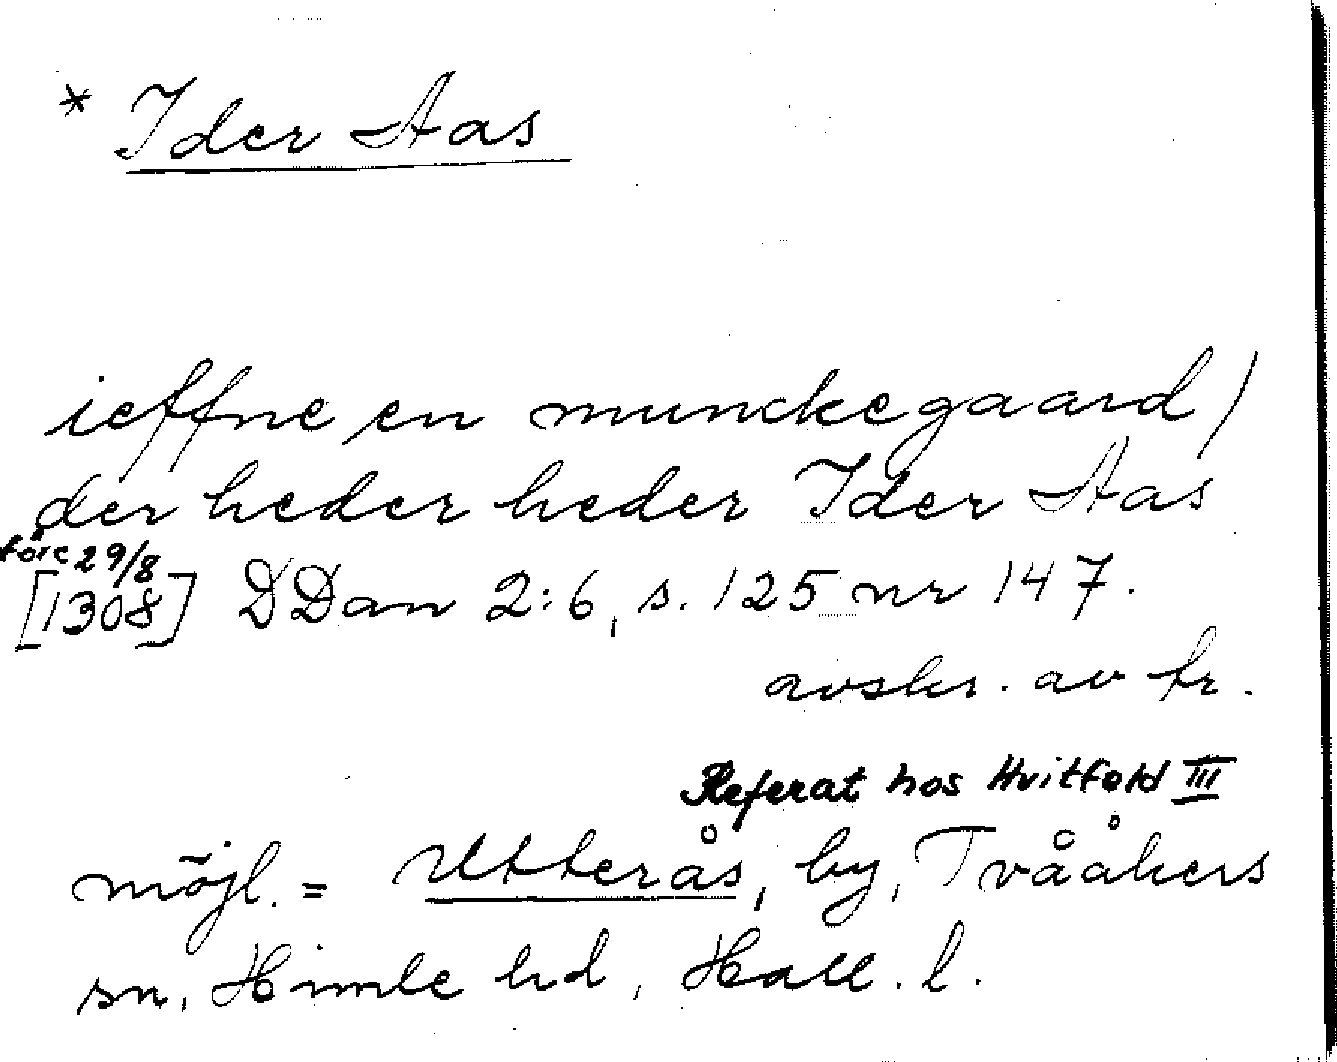 * Ider Aas
ieffne en munckegaard /
der heder heder Ider Aas
före 29/8
[1308] DDan 2:6, s. 125 nr 147.
avskr. av tr.
Referat hos Hvitfeld III
möjl. = Utterås, by, Tvååkers
sn, Himle hd, Hall. l.